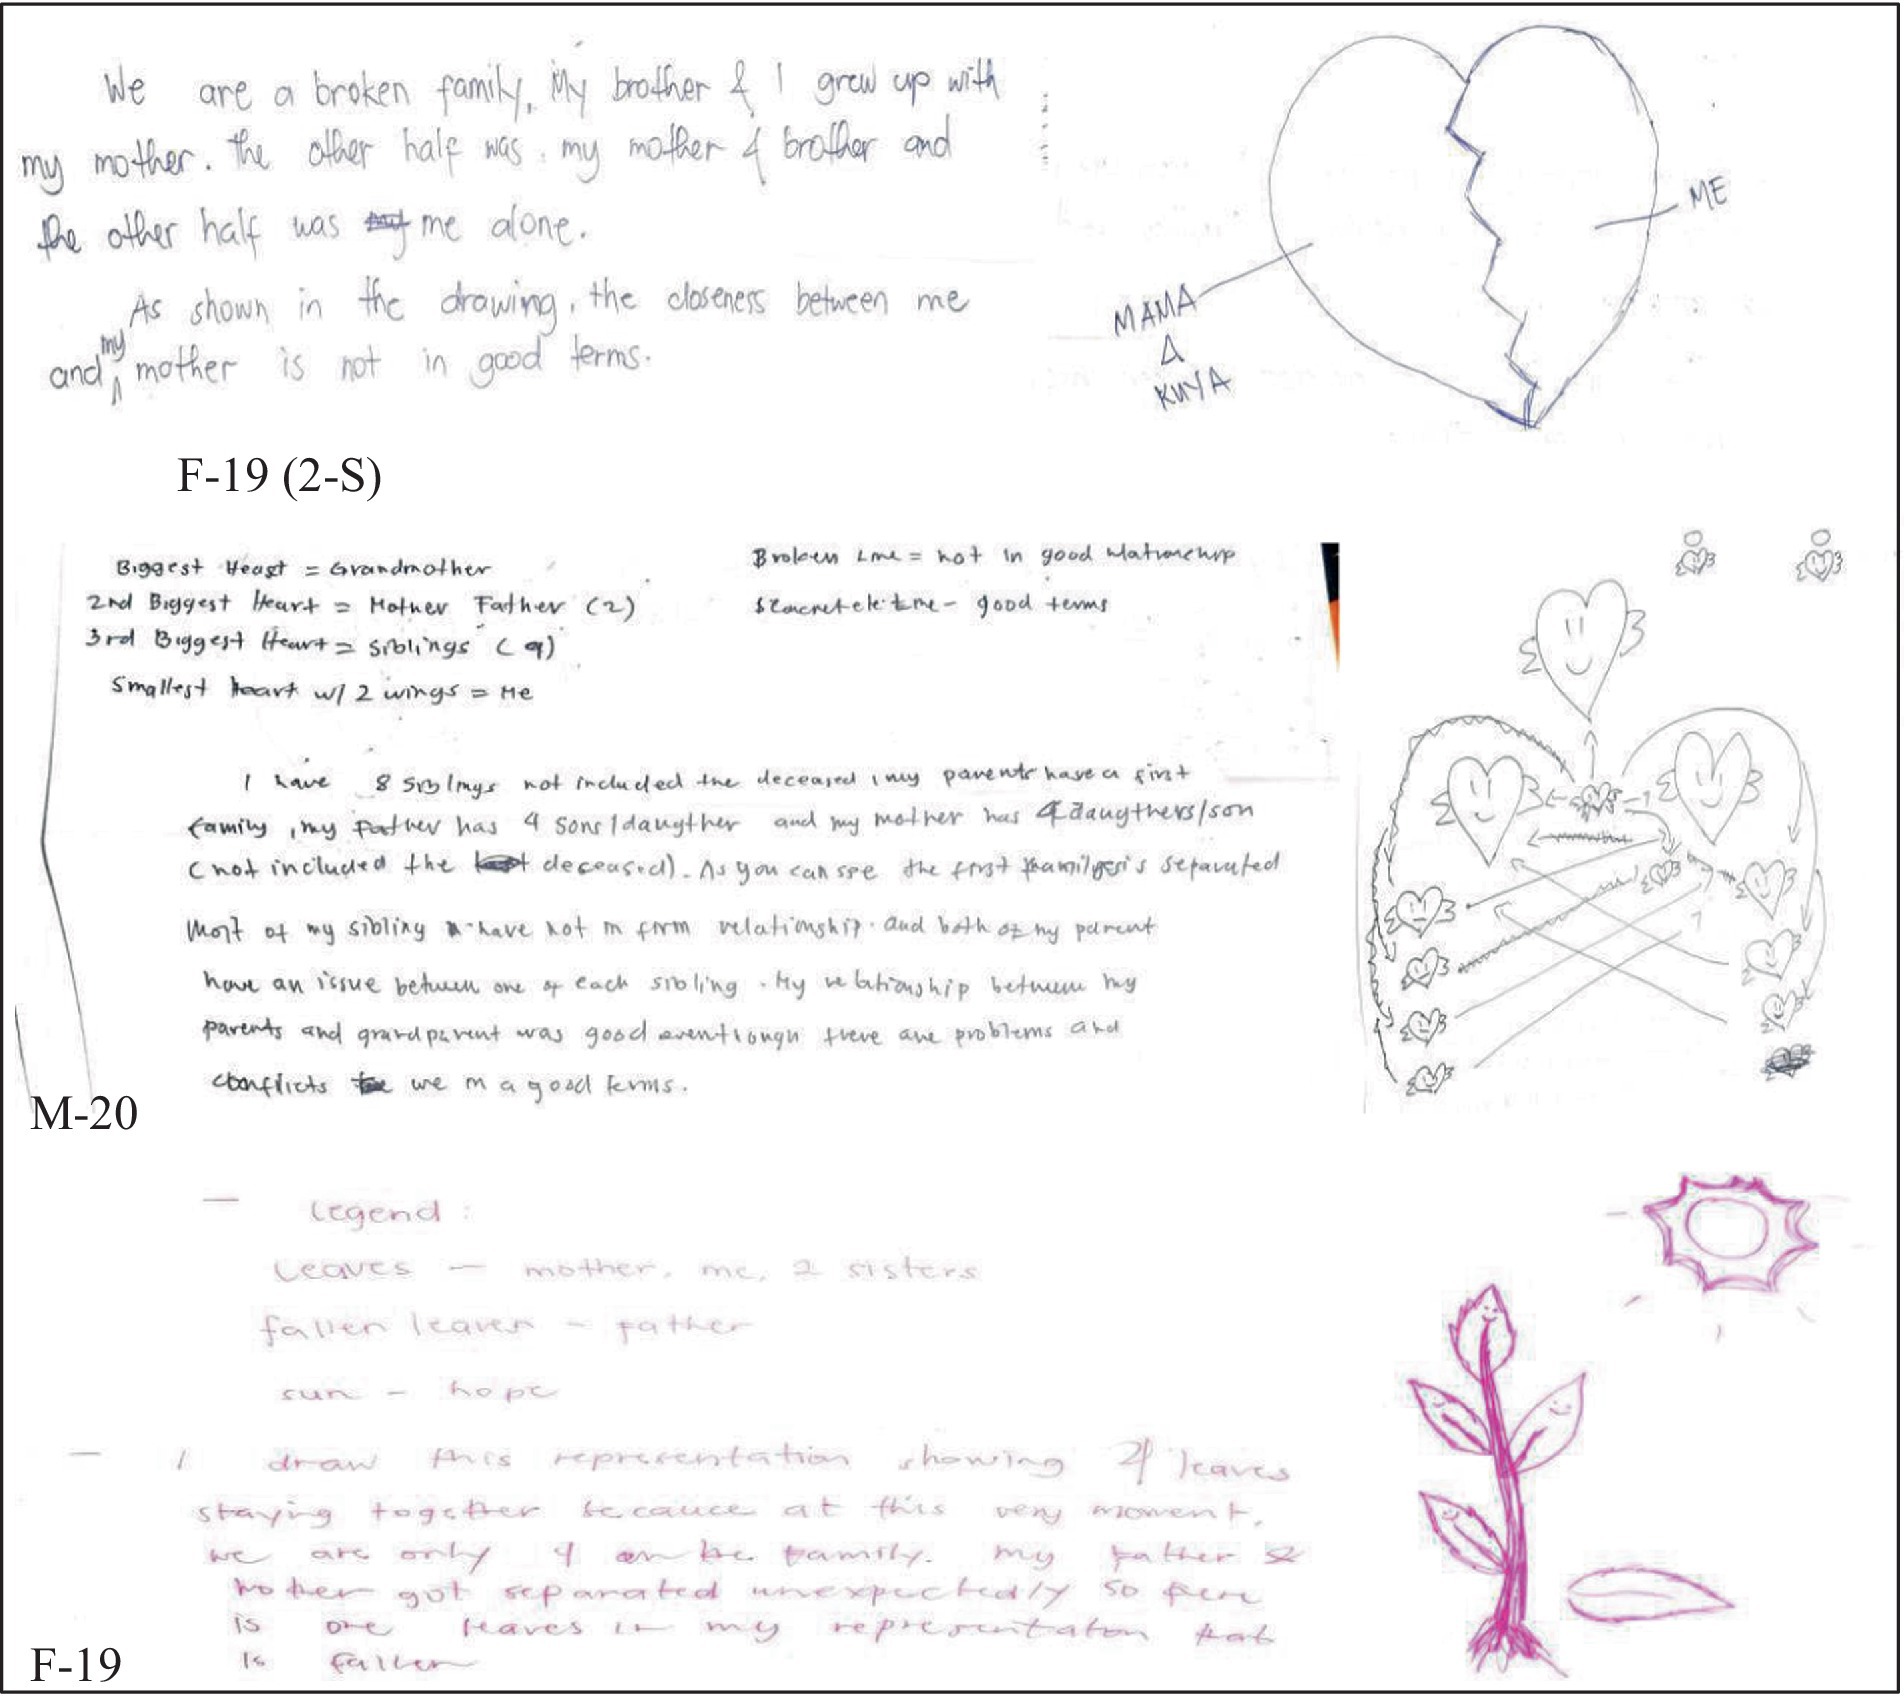 We are a broken family, My brother & I grew up with
my mother. the other half was, my mother & brother and
the other half was me alone.
As shown in the drawing, the closeness between me
and my mother is not in good terms.
MAMA
&
KUYA
ME
F-19 (2-S)
Biggest Heart = Grandmother
2nd Biggest Heart = Mother Father (2)
3rd Biggest Heart = siblings (9)
Smallest heart w/ 2 wings = Me
Broken Line = not in good relationship
good terms
I have 8 siblings not included the deceased, my parents have a first
family, my Father has 4 sons/daugther and my mother has 4 daugthers/son
(not included the deceased). As you can see the first is separated
Most of my sibling have not in firm relationship. and both of my parent
have an issue between one of each sibling. My relationship between my
parents and grandparent was good eventhough there are problems and
conflicts we in a good terms.
M-20
Legend:
Leaves — mother, me, 2 sisters
fallen leaves - father
sun - hope
I draw this representation showing 4 leaves
staying together because at this very moment,
we are only 4 the family. My father &
mother got separated unexpectedly so there
is one leaves in my representation that
is fallen
F-19